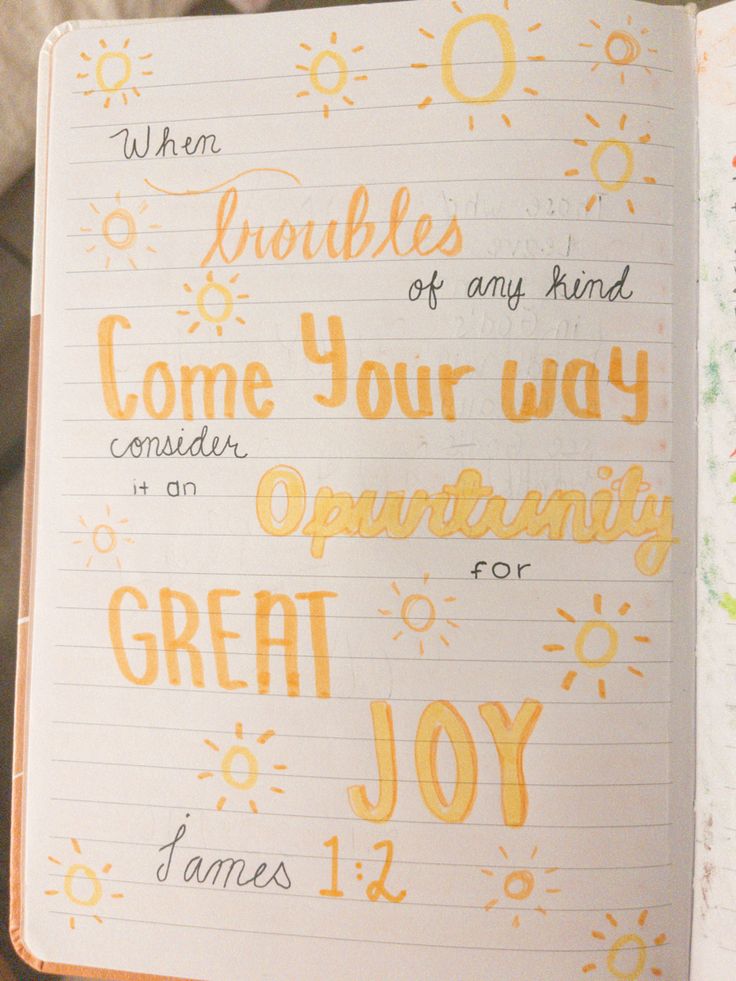 When
troubles
of any kind
Come Your way
consider
it an
Opurtunity
for
GREAT
JOY
James 1:2